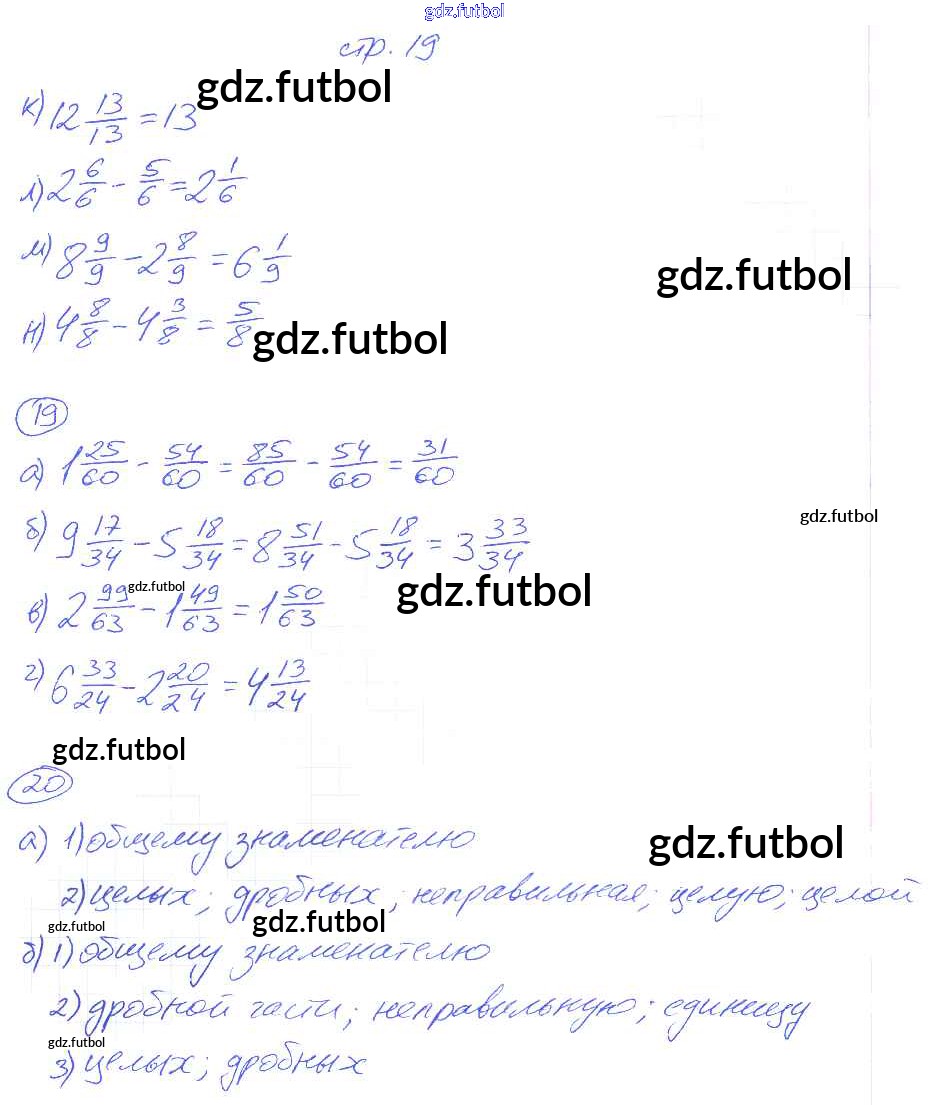 gdz.futbol
стр. 19
gdz.futbol
к) 12 13/13 = 13
л) 2 6/6 - 5/6 = 2 1/6
м) 8 9/9 - 2 8/9 = 6 1/9
gdz.futbol
н) 4 8/8 - 4 3/8 = 5/8
gdz.futbol
19
а) 1 25/60 - 54/60 = 85/60 - 54/60 = 31/60
gdz.futbol
б) 9 17/34 - 5 18/34 = 8 51/34 - 5 18/34 = 3 33/34
gdz.futbol
gdz.futbol
в) 2 99/63 - 1 49/63 = 1 50/63
г) 6 33/24 - 2 20/24 = 4 13/24
gdz.futbol
20
а) 1) общему знаменателю
gdz.futbol
2) целых; дробных; неправильная; целую; целой
gdz.futbol
gdz.futbol
б) 1) общему знаменателю
2) дробной части; неправильную; единицу
gdz.futbol
3) целых; дробных